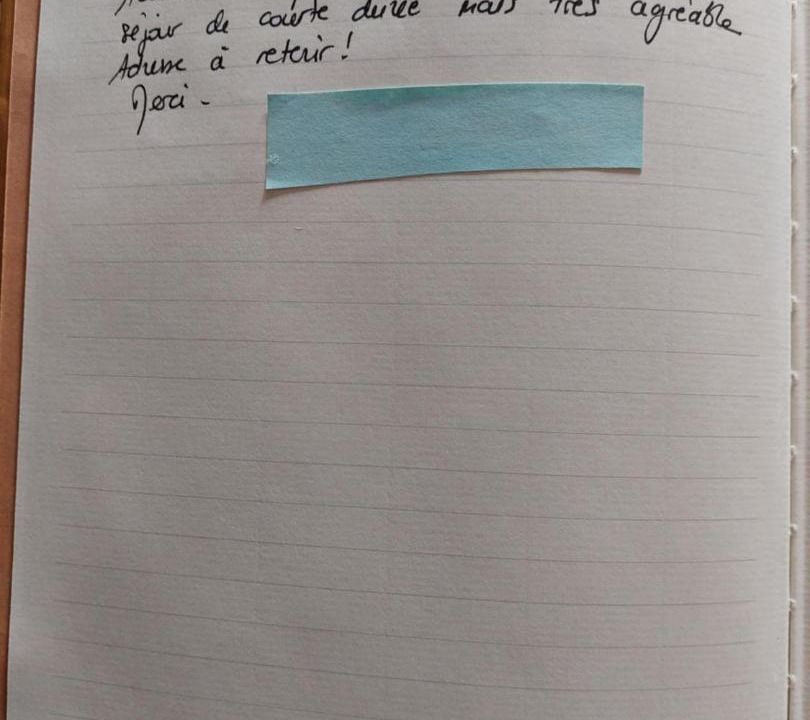 séjour de courte durée mais très agréable
Adresse à retenir !
Merci -